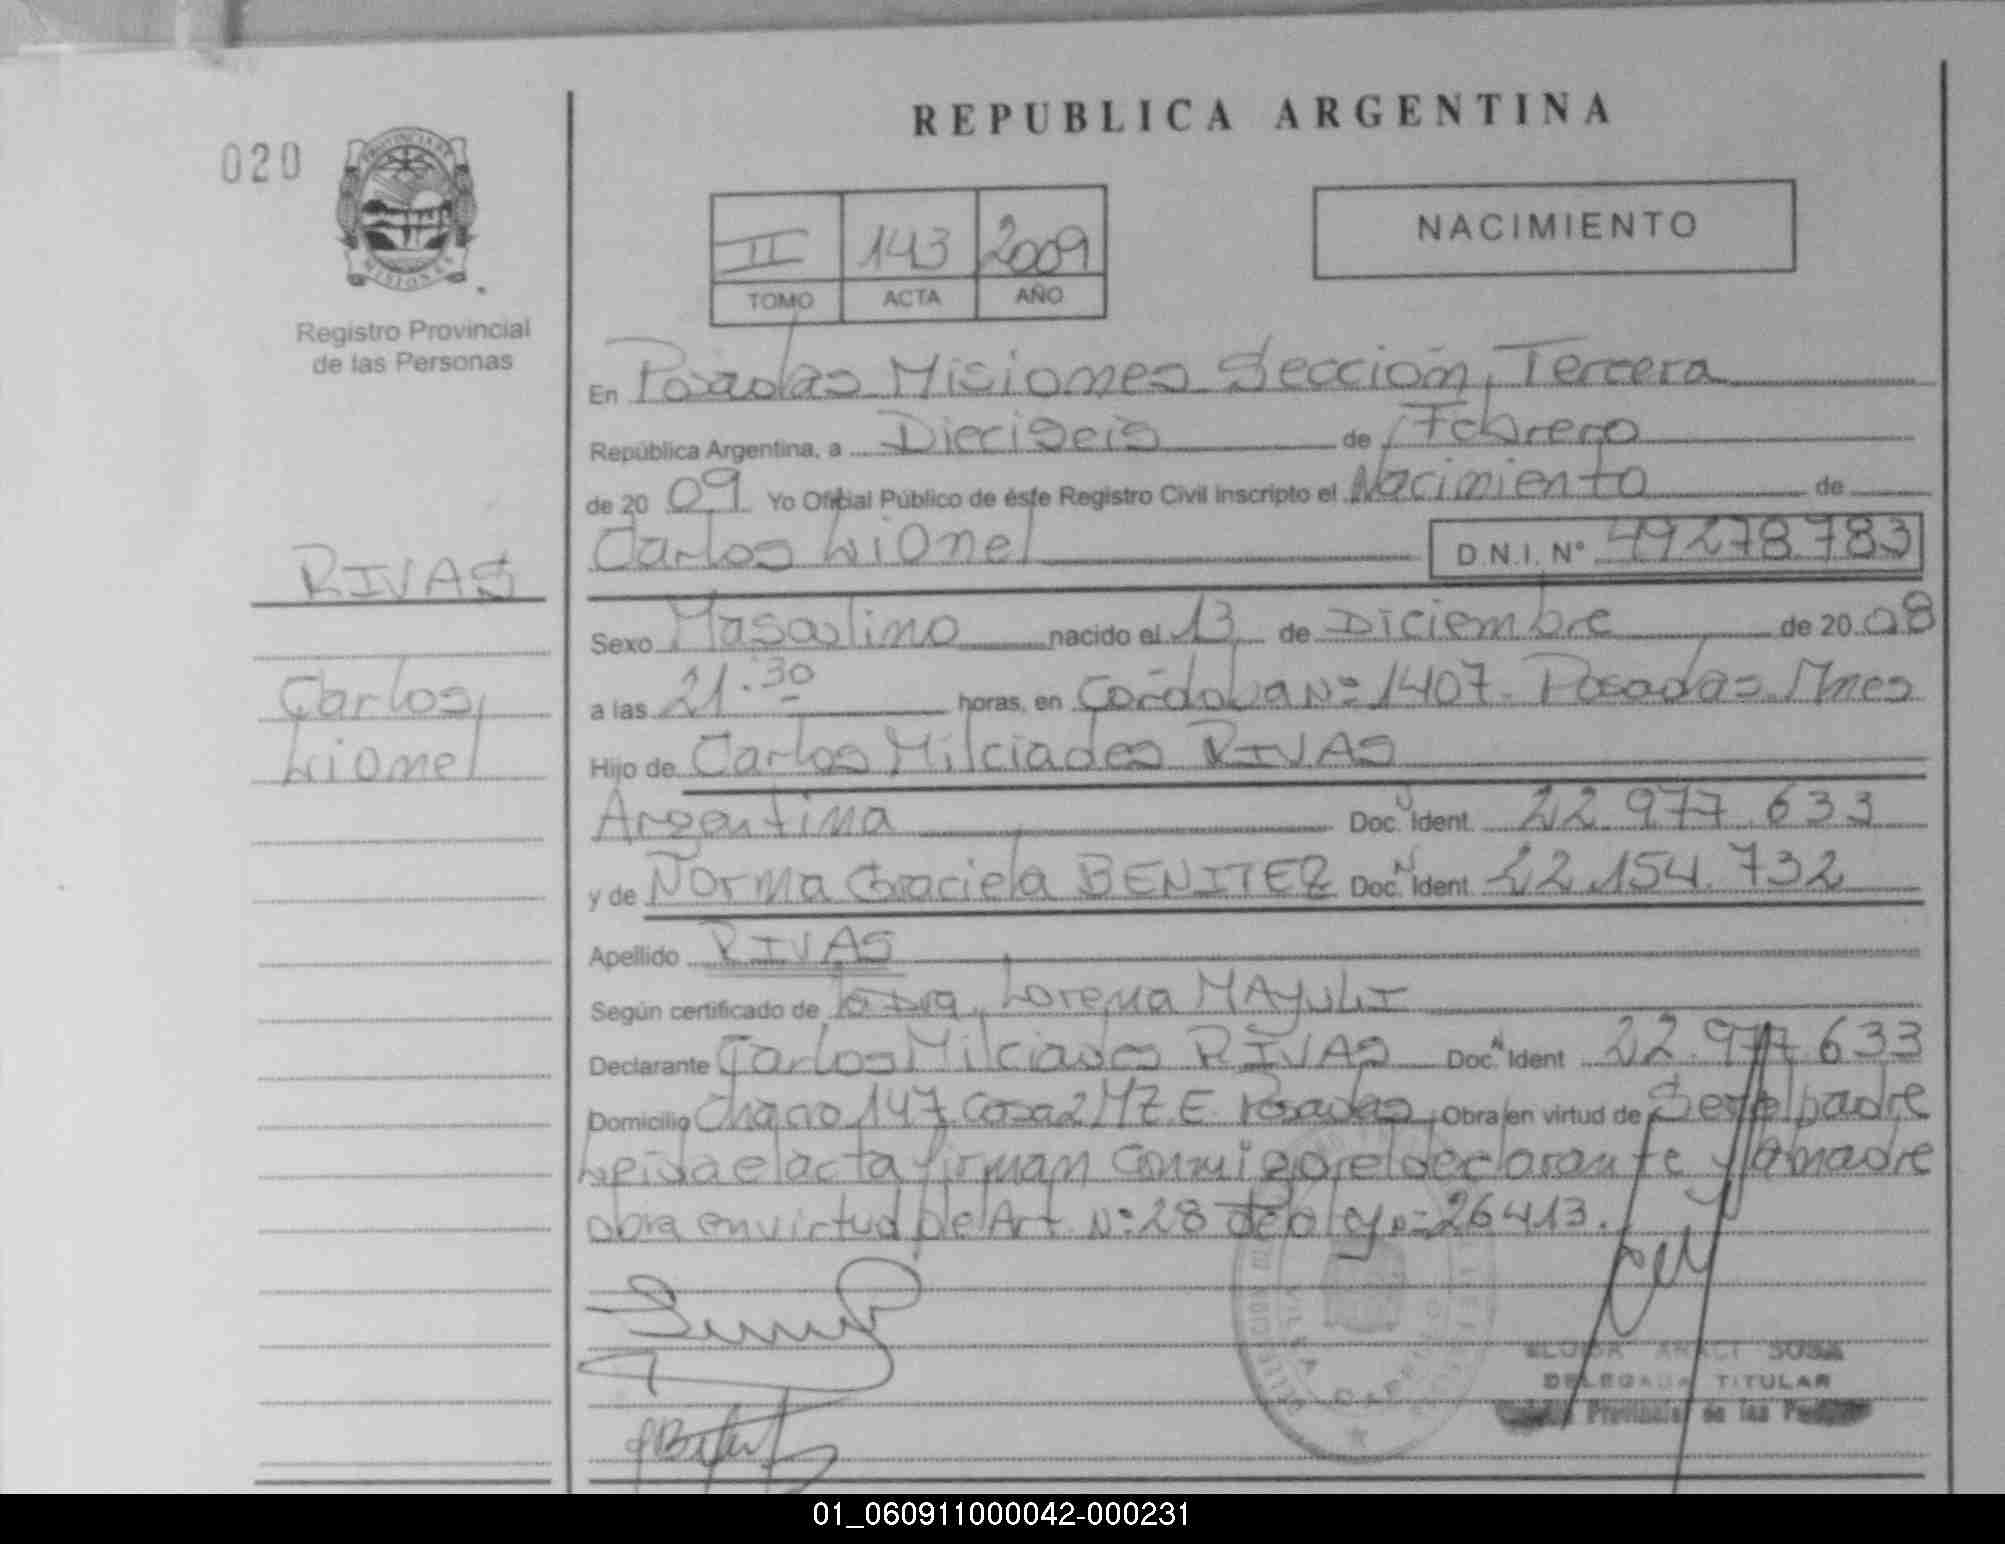 REPUBLICA ARGENTINA
020
PROVINCIA DE
MISIONES
Registro Provincial
de las Personas
II 143 2009
TOMO ACTA AÑO
NACIMIENTO
En Posadas Misiones Sección Tercera
República Argentina, a Dieciseis de Febrero
de 2009 Yo Oficial Público de éste Registro Civil inscripto el Nacimiento de
Carlos Lionel D.N.I. Nº 49278783
RIVAS
Carlos
Lionel
Sexo Masculino nacido el 13 de Diciembre de 2008
a las 21:30 horas, en Cordoba Nº 1407 Posadas Mnes
Hijo de Carlos Milciades RIVAS
Argentina Doc. Ident. 22.977.633
y de Norma Graciela BENITEZ Doc. Ident. 22.154.732
Apellido RIVAS
Según certificado de la Dra. Lorena MAYULI
Declarante Carlos Milciades RIVAS Doc. Ident. 22.977.633
Domicilio Chaco 147 Casa 2 MZ E Posadas Obra en virtud de Ser el padre
Leida el acta firman conmigo el declarante y la madre
obra en virtud del Art. Nº 28 de la ley nº 26413.
ELOISA ARACI SOSA
DELEGADA TITULAR
Provincial de las
01_060911000042-000231